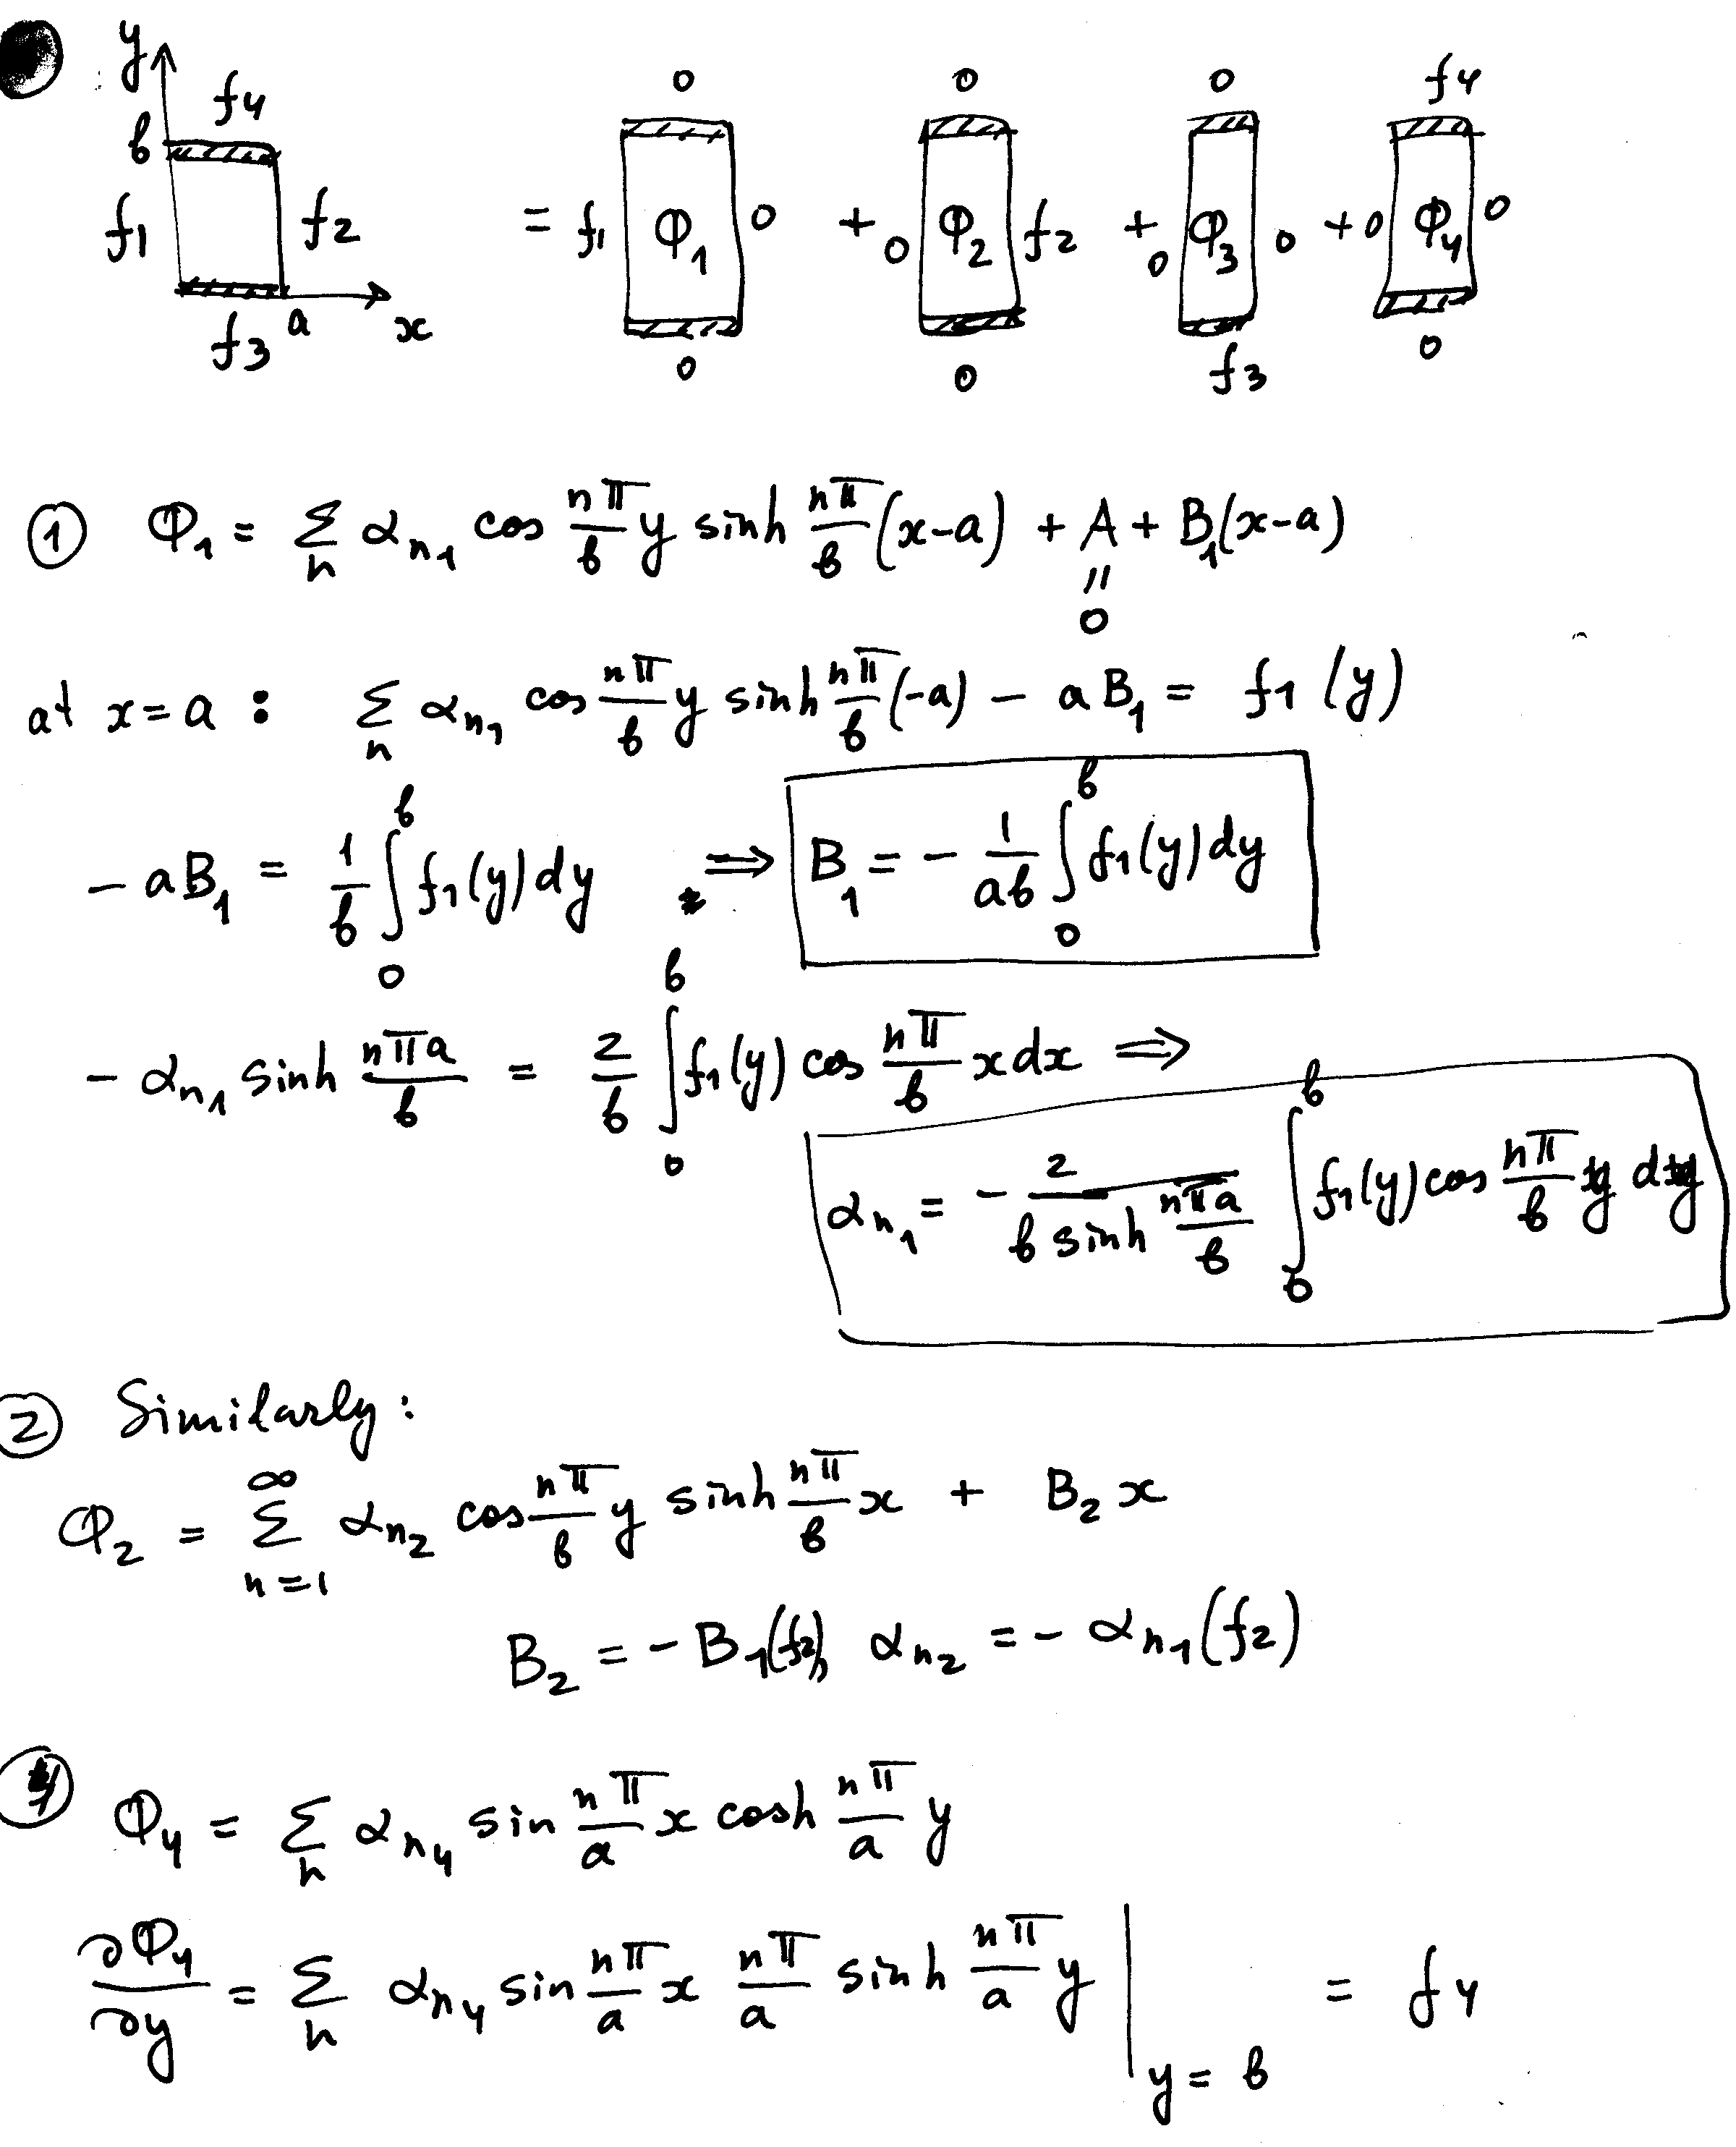 y
b f4
f1 f2 = f1 Φ1 0 + 0 Φ2 f2 + 0 Φ3 0 + 0 Φ4 0
0 0 0 f4
f3 a x 0 0 f3 0
① Φ₁ = Σ_n α_{n1} cos (nπ/b) y sinh (nπ/b)(x-a) + A + B₁(x-a)
"
0
at x = a : Σ_n α_{n1} cos (nπ/b) y sinh (nπ/b)(-a) - aB₁ = f1(y)
- aB₁ = (1/b) ∫_0^b f1(y)dy ⇒ B₁ = - (1/ab) ∫_0^b f1(y)dy
- α_{n1} sinh (nπa/b) = (2/b) ∫_0^b f1(y) cos (nπ/b) x dx ⇒
α_{n1} = - 2/(b sinh (nπa/b)) ∫_0^b f1(y) cos (nπ/b) y dy
② Similarly:
Φ₂ = Σ_{n=1}^∞ α_{n2} cos (nπ/b) y sinh (nπ/b) x + B₂x
B₂ = - B₁(f2), α_{n2} = - α_{n1}(f2)
④ Φ₄ = Σ_n α_{n4} sin (nπ/a) x cosh (nπ/a) y
∂Φ₄/∂y = Σ_n α_{n4} sin (nπ/a) x (nπ/a) sinh (nπ/a) y |_{y=b} = f4